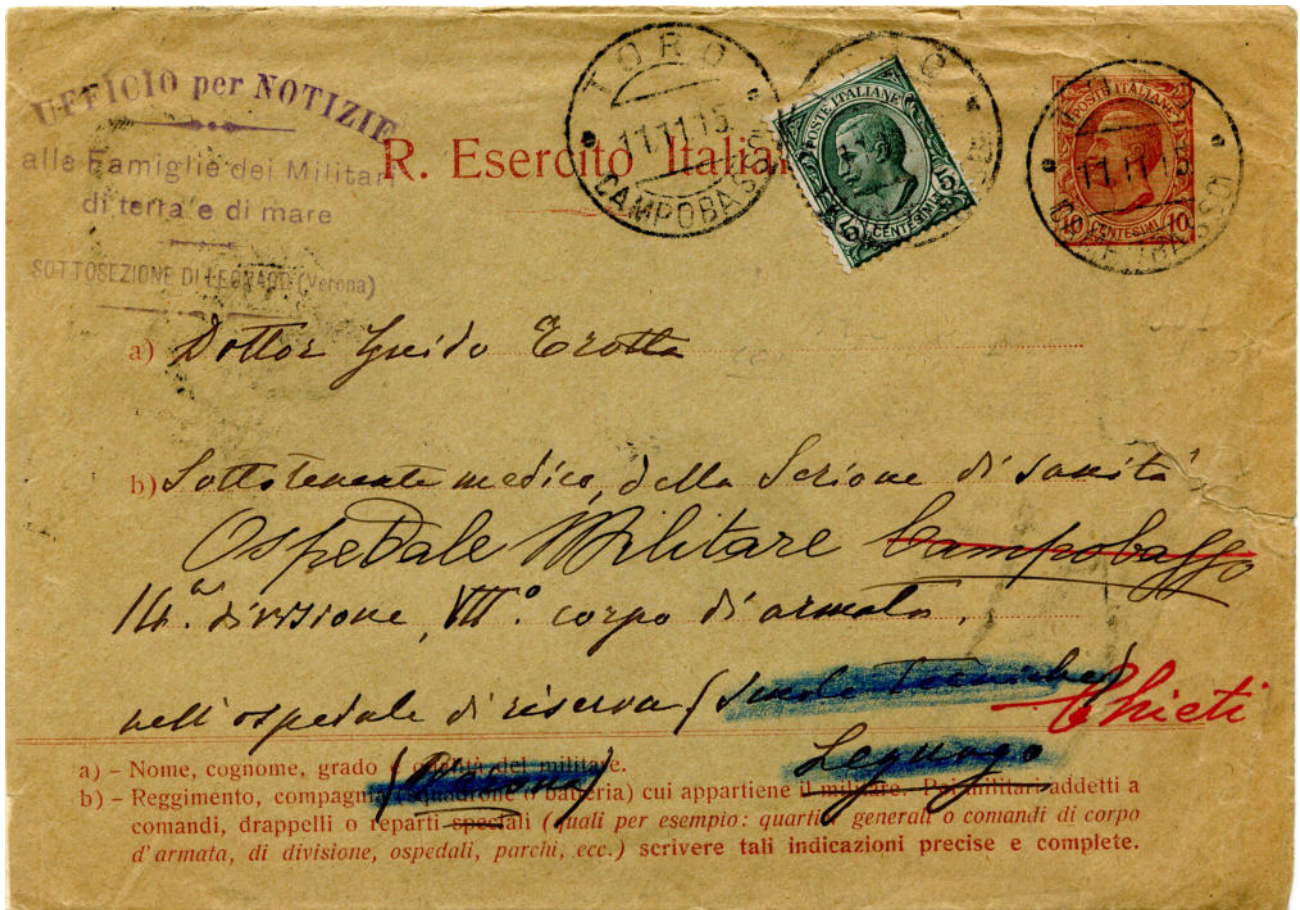 UFFICIO per NOTIZIE
alle Famiglie dei Militari
di terra e di mare
SOTTOSEZIONE DI LEGNAGO (Verona)
R. Esercito Italian
TORO
11.11.15
CAMPOBASSO
POSTE ITALIANE
5 CENTESIMI 5
POSTE ITALIANE
11.11.15
10 CENTESIMI 10
a) Dottor Guido Trotta
b) Sottotenente medico, della Sezione di sanità
Ospedale Militare Campobasso
14.a divisione, VII.o corpo di armata,
nell'ospedale di riserva (Scuole Tecniche) Chieti
Legnago
(Verona)
a) – Nome, cognome, grado e qualità del militare.
b) – Reggimento, compagnia (squadrone o batteria) cui appartiene il militare. Pei militari addetti a
comandi, drappelli o reparti speciali (quali per esempio: quartieri generali o comandi di corpo
d'armata, di divisione, ospedali, parchi, ecc.) scrivere tali indicazioni precise e complete.